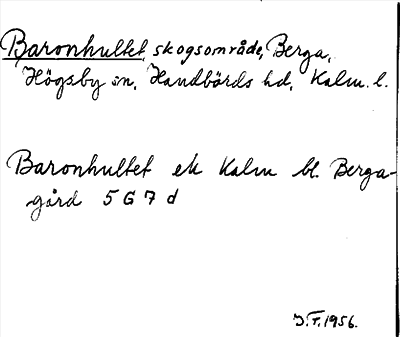 Baronhultet, skogsområde, Berga,
Högsby sn, Handbörds hd, Kalm. l.
Baronhultet ek Kalm bl. Berga-
gård 5 G 7 d
J.F. 1956.